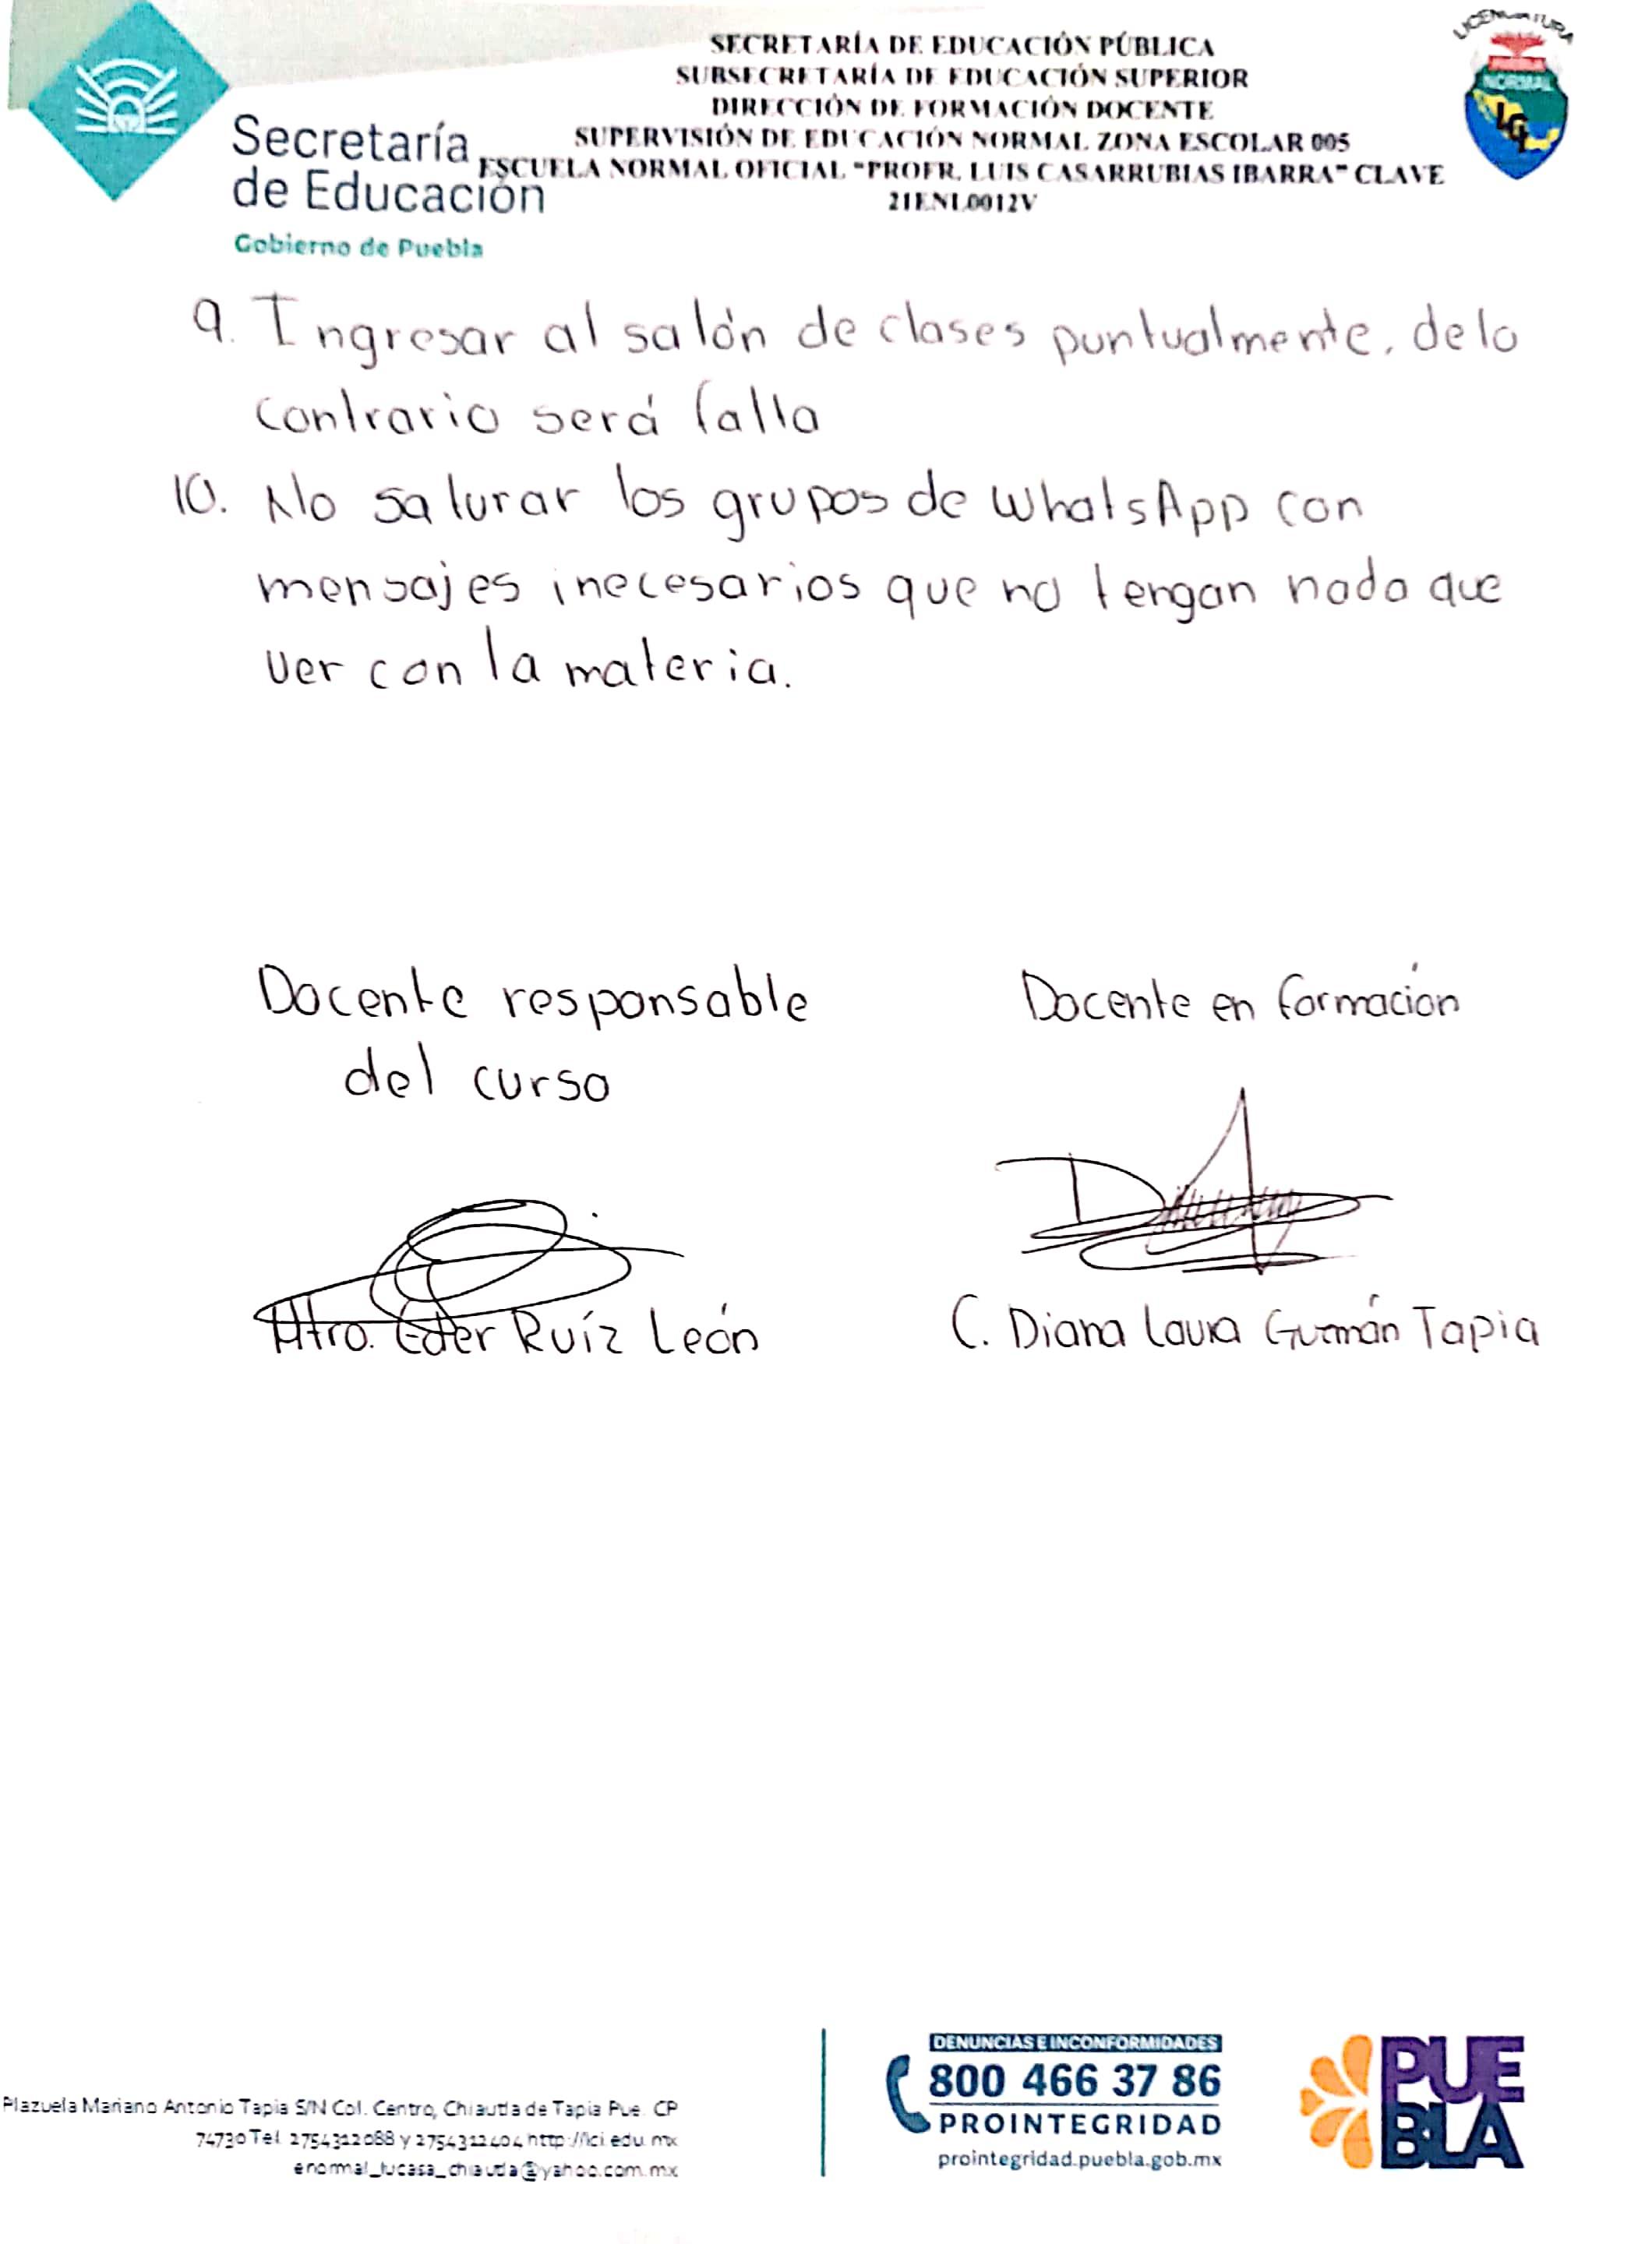 LICENCIATURA
NORMAL
Secretaría
de Educación
Gobierno de Puebla
SECRETARÍA DE EDUCACIÓN PÚBLICA
SUBSECRETARÍA DE EDUCACIÓN SUPERIOR
DIRECCIÓN DE FORMACIÓN DOCENTE
SUPERVISIÓN DE EDUCACIÓN NORMAL ZONA ESCOLAR 005
ESCUELA NORMAL OFICIAL "PROFR. LUIS CASARRUBIAS IBARRA" CLAVE
21ENL0012V
9. Ingresar al salón de clases puntualmente, delo
contrario será falta
10. No saturar los grupos de WhatsApp con
mensajes inecesarios que no tengan nada que
ver con la materia.
Docente responsable
del curso
Docente en formación
Mtro. Eder Ruíz León
C. Diana Laura Guzmán Tapia
Plazuela Mariano Antonio Tapia S/N Col. Centro, Chiautla de Tapia Pue. CP
74730 Tel. 2754312088 y 2754312404 http://lci.edu.mx
enormal_lucasa_chiautla@yahoo.com.mx
DENUNCIAS E INCONFORMIDADES
800 466 37 86
PROINTEGRIDAD
prointegridad.puebla.gob.mx
PUE
BLA